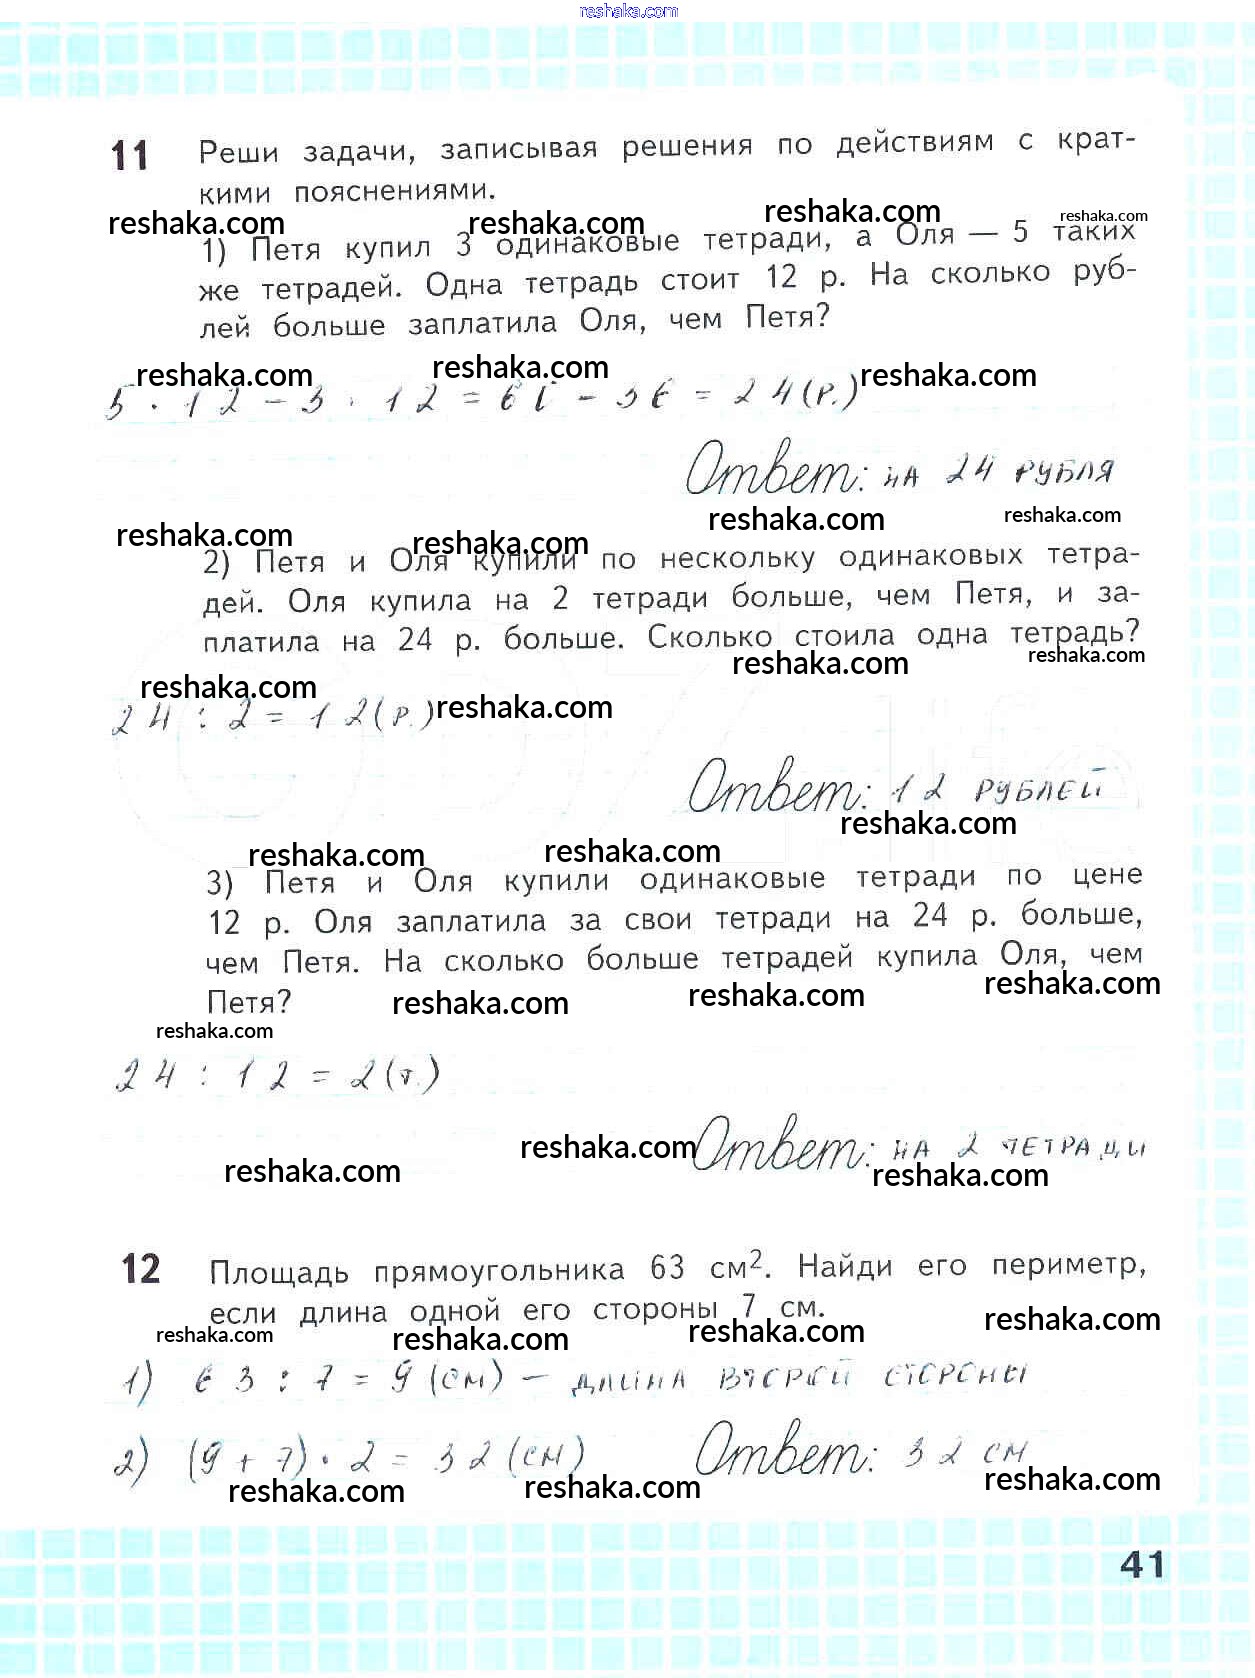 reshaka.com
11 Реши задачи, записывая решения по действиям с крат-
кими пояснениями.
reshaka.com reshaka.com reshaka.com reshaka.com
1) Петя купил 3 одинаковые тетради, а Оля — 5 таких
же тетрадей. Одна тетрадь стоит 12 р. На сколько руб-
лей больше заплатила Оля, чем Петя?
reshaka.com reshaka.com reshaka.com
5 · 12 - 3 · 12 = 60 - 36 = 24 (р.)
Ответ: на 24 рубля
reshaka.com reshaka.com reshaka.com reshaka.com
2) Петя и Оля купили по нескольку одинаковых тетра-
дей. Оля купила на 2 тетради больше, чем Петя, и за-
платила на 24 р. больше. Сколько стоила одна тетрадь?
reshaka.com reshaka.com reshaka.com reshaka.com
24 : 2 = 12 (р.)
Ответ: 12 рублей
reshaka.com reshaka.com reshaka.com
3) Петя и Оля купили одинаковые тетради по цене
12 р. Оля заплатила за свои тетради на 24 р. больше,
чем Петя. На сколько больше тетрадей купила Оля, чем
Петя?
reshaka.com reshaka.com reshaka.com reshaka.com
24 : 12 = 2 (т.)
Ответ: на 2 тетради
reshaka.com reshaka.com reshaka.com
12 Площадь прямоугольника 63 см². Найди его периметр,
если длина одной его стороны 7 см.
reshaka.com reshaka.com reshaka.com reshaka.com
1) 63 : 7 = 9 (см) - длина второй стороны
2) (9 + 7) · 2 = 32 (см) Ответ: 32 см
reshaka.com reshaka.com reshaka.com
41